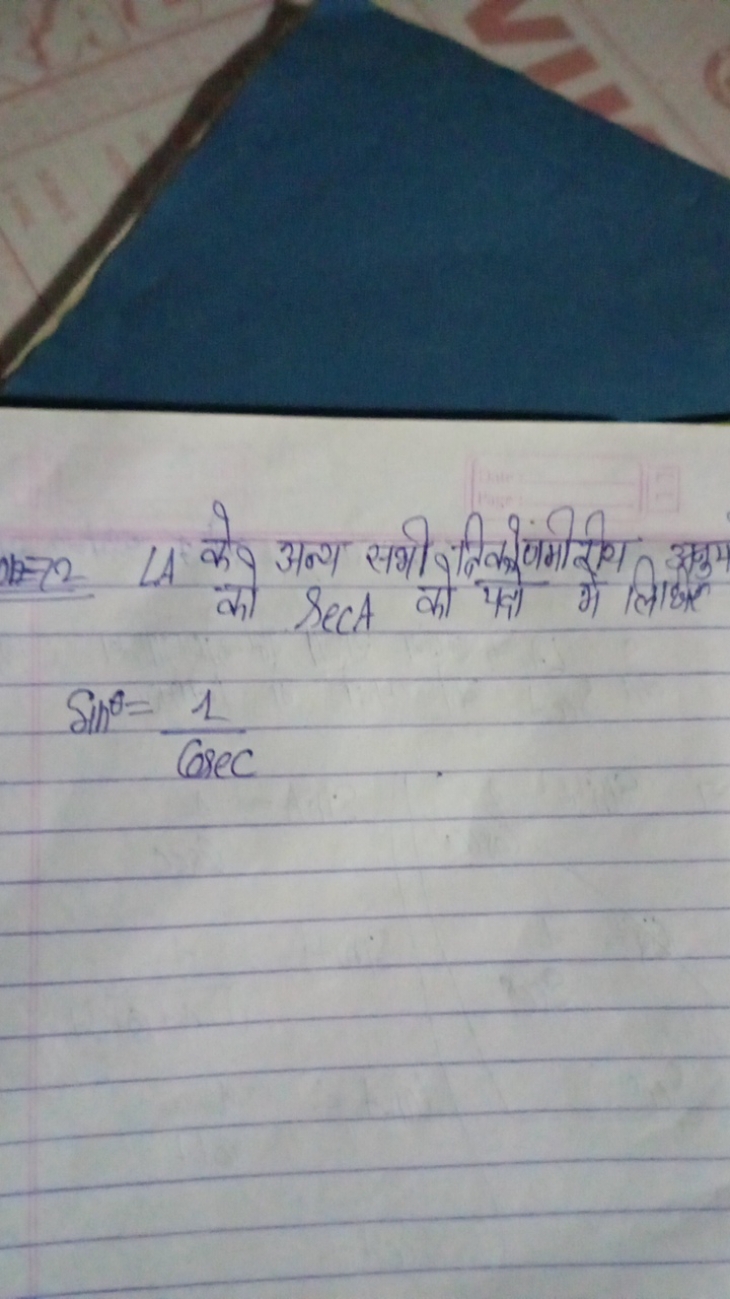 ∠A के अन्य सभी त्रिकोणमीतीय
को SecA को पदो में लिखिए
Sinθ = 1
Cosec